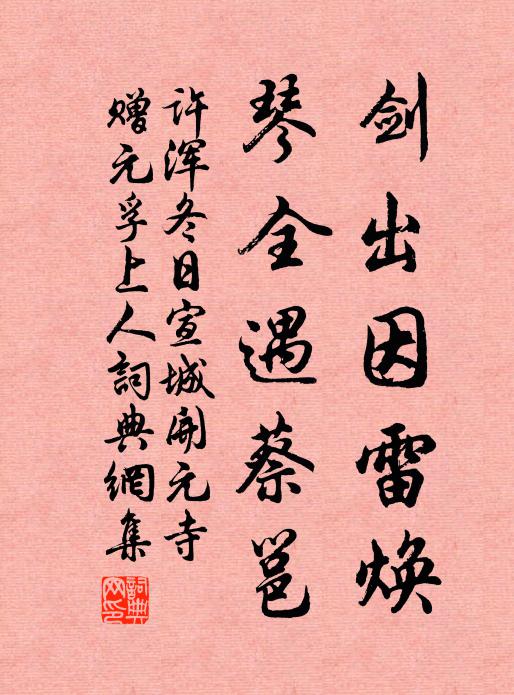 剑出因雷焕
琴全遇蔡邕
许浑冬日宣城开元寺
赠元孚上人词典網集
詞典網印